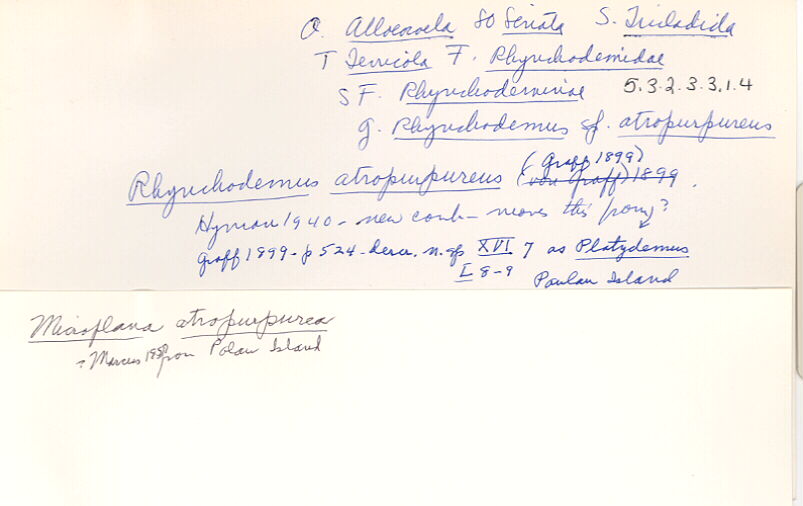 O. Alloeocoela SO Seriata S. Tricladida
T Terricola F. Rhynchodemidae
SF. Rhynchodeminae 5.3.2.3.3.1.4
g. Rhynchodemus sp. atropurpureus
(Graff 1899)
Rhynchodemus atropurpureus (von Graff) 1899.
Hyman 1940 - new comb - means this from?
Graff 1899 - p 524 - descr. n. sp XVI 7 as Platydemus
L 8-9 Poulau Island
Microplana atropurpurea
: Marcus from Polau Island